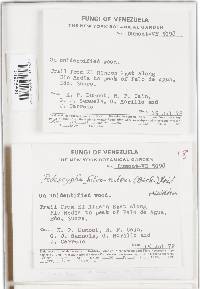 FUNGI OF VENEZUELA
THE NEW YORK BOTANICAL GARDEN
No. Dumont-VE 5098
On unidentified wood.
Trail from El Rincon East along
Rio Medio to peak of Palo de Agua,
Edo. Sucre.
K. P. Dumont, R. F. Cain,
G. J. Samuels, G. Morillo and
J. Carreto
FUNGI OF VENEZUELA
OF NEW YORK BOTANICAL GARDEN
No. Dumont-VE 5098
On unidentified wood.
Trail from El Rincon East along
Rio Medio to peak of Palo de Agua,
Edo. Sucre.
Co. K. P. Dumont, R. F. Cain,
G. J. Samuels, G. Morillo and
J. Carreto